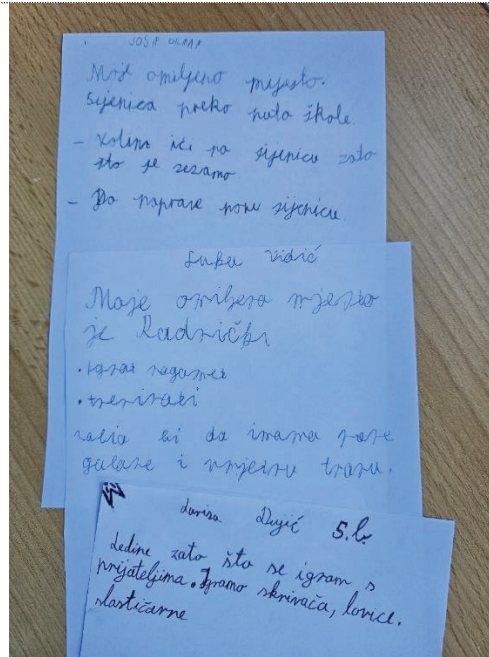 JOSIP
Moje omiljeno mjesto.
Sjenica preko puta škole
- Volim ići na sijenicu zato
što se zezamo
- Da naprave novu sijenicu.
Luka Vidić
Moje omiljeno mjesto
je Radnički
• igrat nogomet
• trenirati
volio bi da imamo nove
golove i umjetnu travu.
Dujić 5.b
Ledine zato što se igram s
prijateljima. Igramo skrivača, lovice.
slastičarne